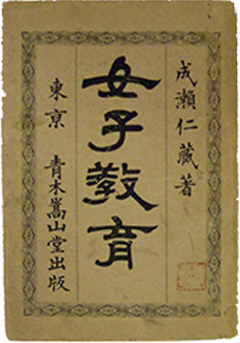 成瀬仁藏著
女子教育
東京 青木嵩山堂出版